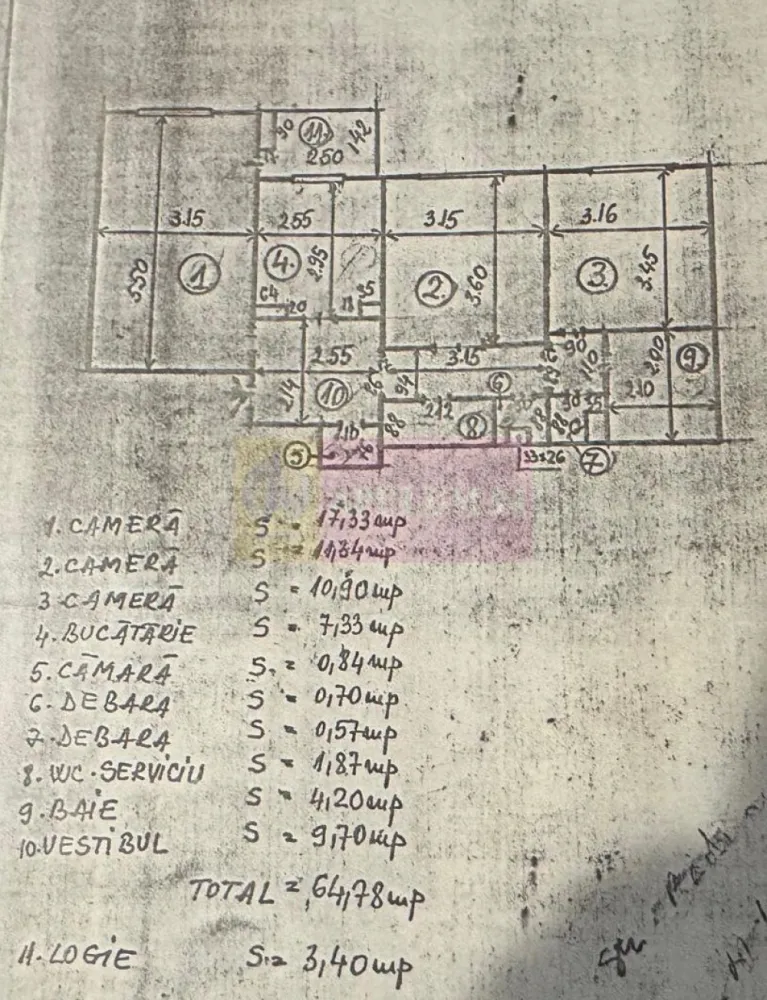 90 11. 142
250
3.15 2.55 3.15 3.16
5.50 1 4. 2.95 2. 3.60 3. 3.45
64 20
2.55 3.15 90 110 2.00 9
2.14 10 94 6
2.12 8 88 88 2.10
5 33x26 7
1. CAMERĂ S = 17,33 mp
2. CAMERĂ S = 11,34 mp
3 CAMERĂ S = 10,90 mp
4. BUCĂTĂRIE S = 7,33 mp
5. CĂMARĂ S. = 0,84 mp
6. DEBARA S = 0,70 mp
7. DEBARA S = 0,57 mp
8. WC. SERVICIU S = 1,87 mp
9. BAIE S = 4,20 mp
10. VESTIBUL S = 9,70 mp
TOTAL = 64,78 mp
11. LOGIE S. = 3,40 mp